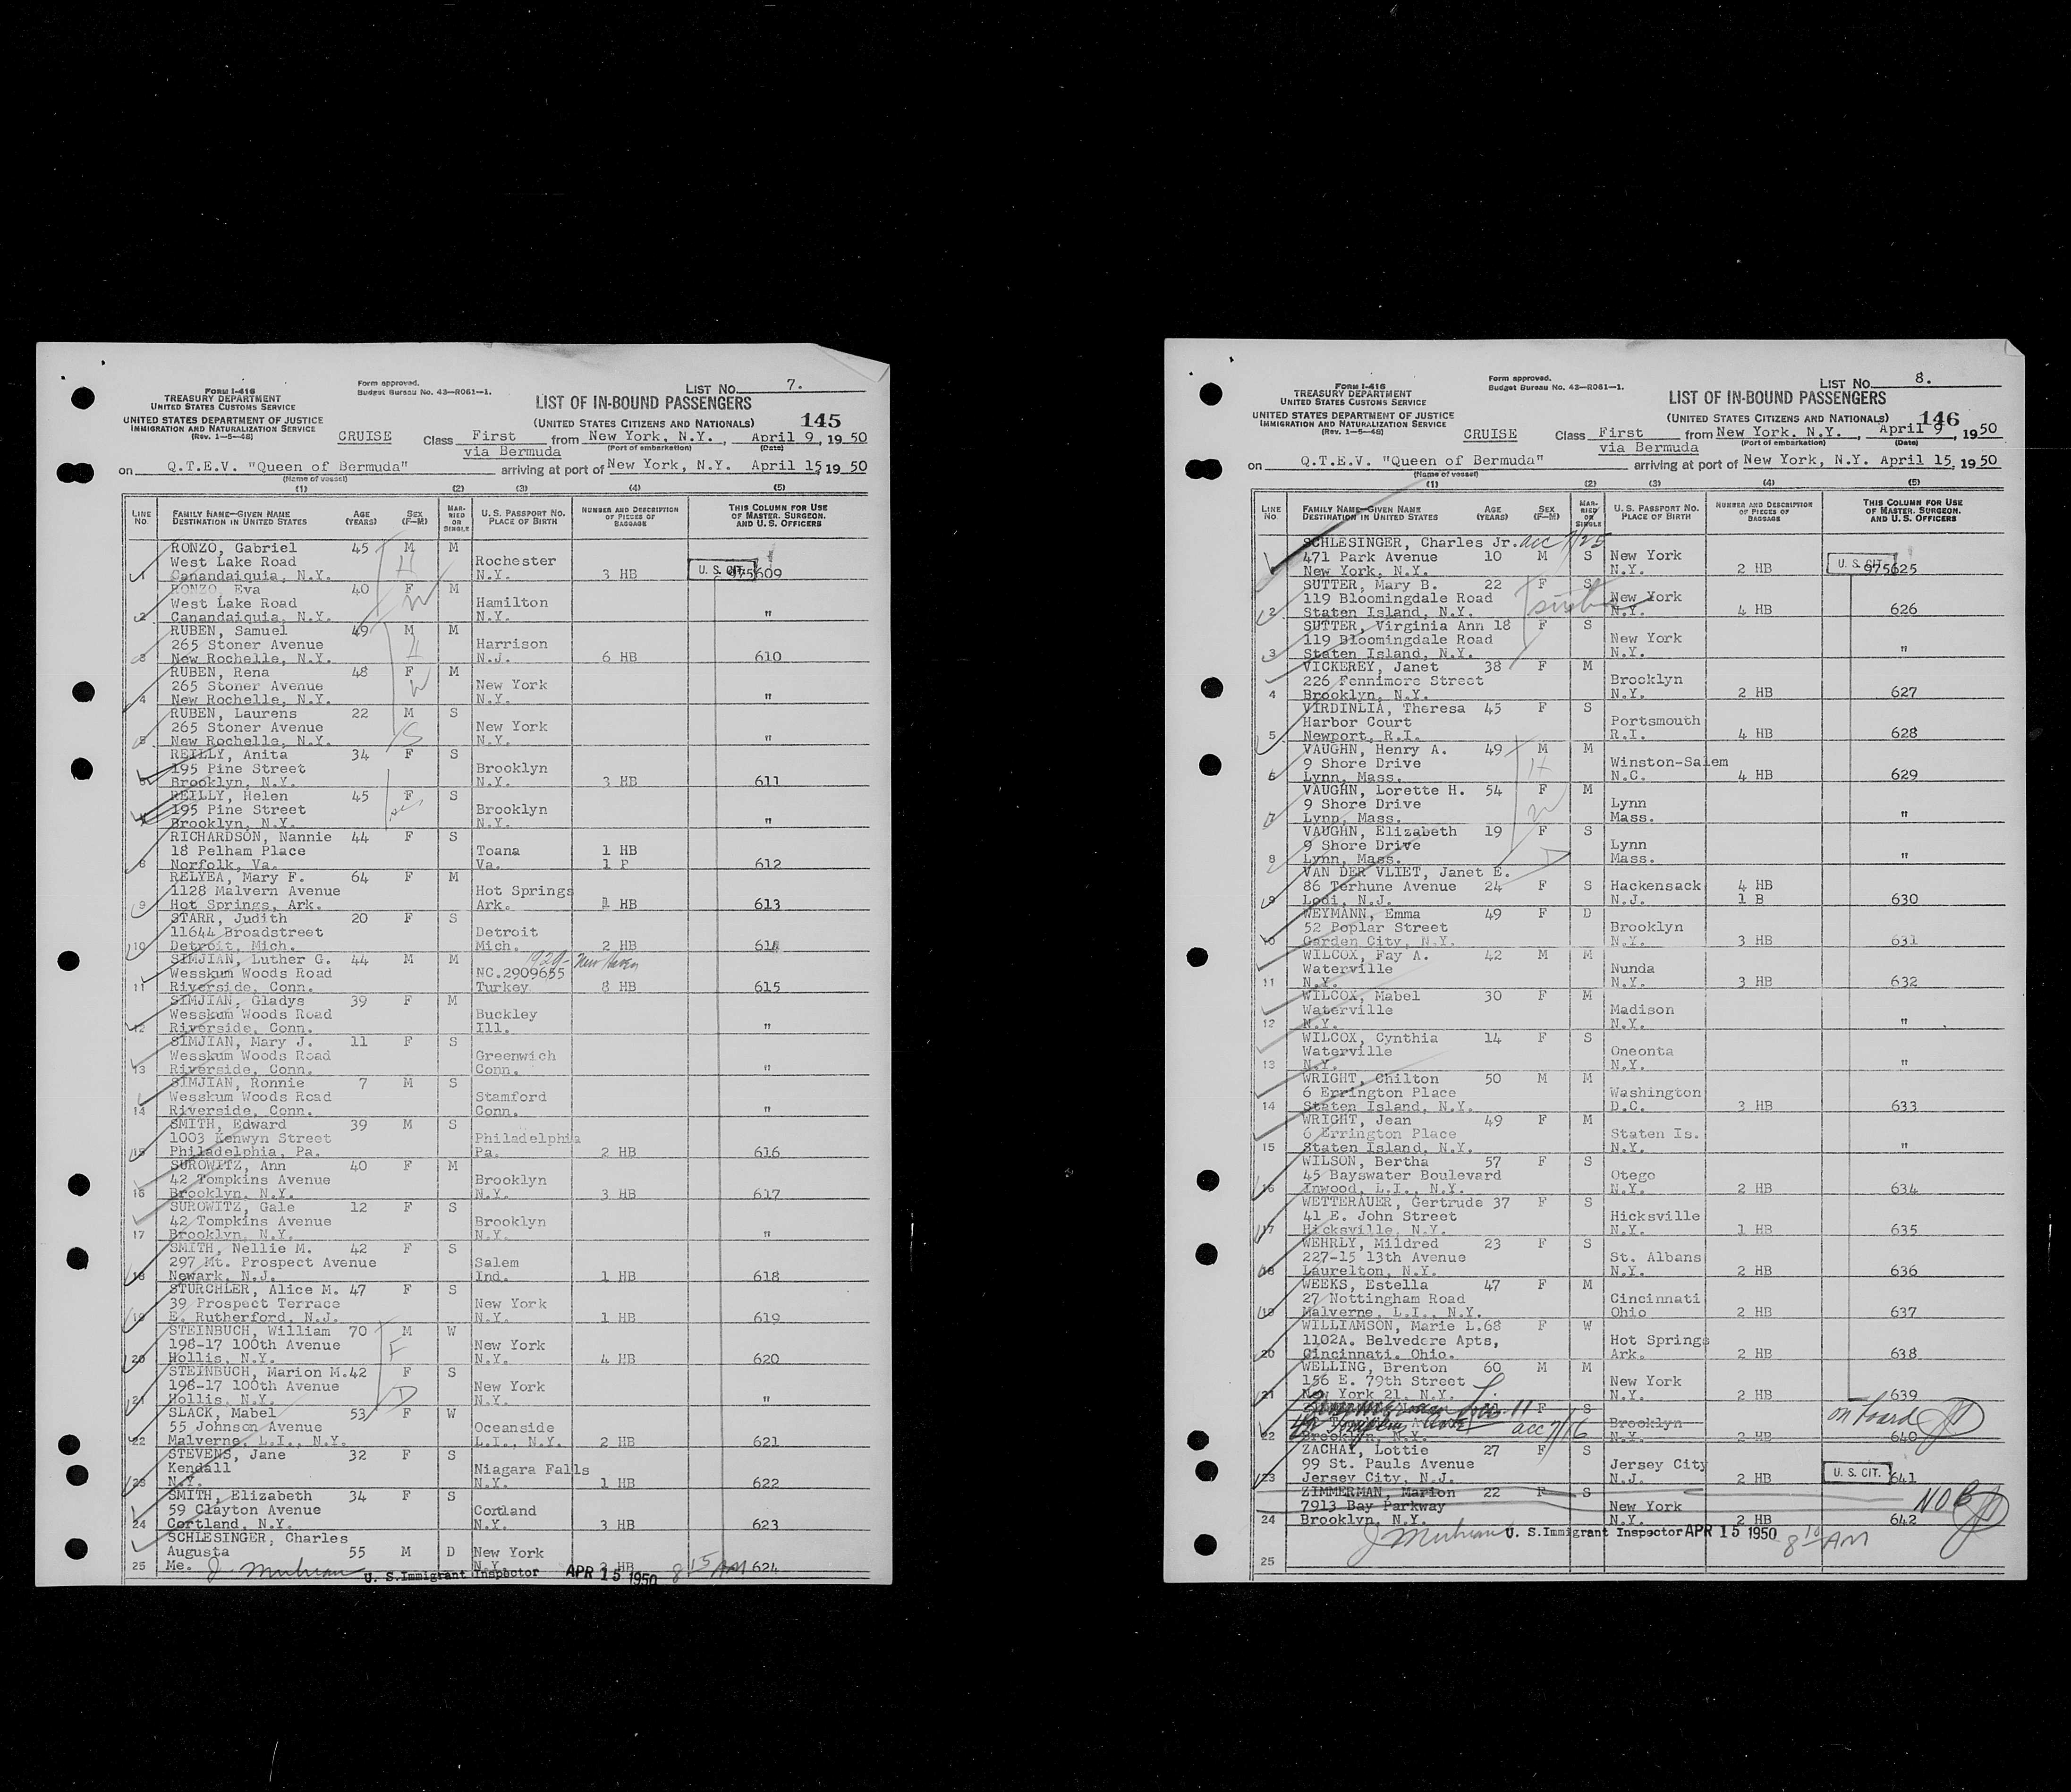 Form I-416
TREASURY DEPARTMENT
United States Customs Service
UNITED STATES DEPARTMENT OF JUSTICE
Immigration and Naturalization Service
(Rev. 1-5-48)
Form approved.
Budget Bureau No. 43-R061-1.
List No. 7.
LIST OF IN-BOUND PASSENGERS
(United States Citizens and Nationals) 145
CRUISE Class First from New York, N.Y., April 9, 1950
via Bermuda (Port of embarkation) (Date)
on Q.T.E.V. "Queen of Bermuda" arriving at port of New York, N.Y. April 15, 1950
(Name of vessel)
(1) (2) (3) (4) (5)
Line No. Family Name—Given Name Destination in United States Age (Years) Sex (F-M) Married or Single U.S. Passport No. Place of Birth Number and Description of Pieces of Baggage This Column for Use of Master, Surgeon, and U.S. Officers
RONZO, Gabriel 45 M M
West Lake Road H Rochester
1 Canandaiquia, N.Y. N.Y. 3 HB U. S. CIT. 975609
RONZO, Eva 40 F M
West Lake Road W Hamilton
2 Canandaiquia, N.Y. N.Y. "
RUBEN, Samuel 49 M M
265 Stoner Avenue H Harrison
3 New Rochelle, N.Y. N.J. 6 HB 610
RUBEN, Rena 48 F M
265 Stoner Avenue W New York
4 New Rochelle, N.Y. N.Y. "
RUBEN, Laurens 22 M S
265 Stoner Avenue New York
5 New Rochelle, N.Y. S N.Y. "
REILLY, Anita 34 F S
195 Pine Street Brooklyn
6 Brooklyn, N.Y. N.Y. 3 HB 611
REILLY, Helen 45 F S
195 Pine Street sis Brooklyn
7 Brooklyn, N.Y. N.Y. "
RICHARDSON, Nannie 44 F S
18 Pelham Place Toana 1 HB
8 Norfolk, Va. Va. 1 P 612
RELYEA, Mary F. 64 F M
1128 Malvern Avenue Hot Springs
9 Hot Springs, Ark. Ark. 1 HB 613
STARR, Judith 20 F S
11644 Broadstreet Detroit
10 Detroit, Mich. Mich. 2 HB 614
SIMJIAN, Luther G. 44 M M 1929- New Haven
Wesskum Woods Road NC.2909655
11 Riverside, Conn. Turkey 8 HB 615
SIMJIAN, Gladys 39 F M
Wesskum Woods Road Buckley
12 Riverside, Conn. Ill. "
SIMJIAN, Mary J. 11 F S
Wesskum Woods Road Greenwich
13 Riverside, Conn. Conn. "
SIMJIAN, Ronnie 7 M S
Wesskum Woods Road Stamford
14 Riverside, Conn. Conn. "
SMITH, Edward 39 M S
1003 Kenwyn Street Philadelphia
15 Philadelphia, Pa. Pa. 2 HB 616
SUROWITZ, Ann 40 F M
42 Tompkins Avenue Brooklyn
16 Brooklyn, N.Y. N.Y. 3 HB 617
SUROWITZ, Gale 12 F S
42 Tompkins Avenue Brooklyn
17 Brooklyn, N.Y. N.Y. "
SMITH, Nellie M. 42 F S
297 Mt. Prospect Avenue Salem
18 Newark, N.J. Ind. 1 HB 618
STURCHLER, Alice M. 47 F S
39 Prospect Terrace New York
19 E. Rutherford, N.J. N.Y. 1 HB 619
STEINBUCH, William 70 M W
198-17 100th Avenue F New York
20 Hollis, N.Y. N.Y. 4 HB 620
STEINBUCH, Marion M. 42 F S
198-17 100th Avenue New York
21 Hollis, N.Y. D N.Y. "
SLACK, Mabel 53 F W
55 Johnson Avenue Oceanside
22 Malverne, L.I., N.Y. L.I., N.Y. 2 HB 621
STEVENS, Jane 32 F S
Kendall Niagara Falls
23 N.Y. N.Y. 1 HB 622
SMITH, Elizabeth 34 F S
59 Clayton Avenue Cortland
24 Cortland, N.Y. N.Y. 3 HB 623
SCHLESINGER, Charles
Augusta 55 M D New York
25 Me. N.Y. 3 HB 624
U. S. Immigrant Inspector APR 15 1950 8 15 AM
Form I-416
TREASURY DEPARTMENT
United States Customs Service
UNITED STATES DEPARTMENT OF JUSTICE
Immigration and Naturalization Service
(Rev. 1-5-48)
Form approved.
Budget Bureau No. 43-R061-1.
List No. 8.
LIST OF IN-BOUND PASSENGERS
(United States Citizens and Nationals) 146
CRUISE Class First from New York, N.Y., April 9, 1950
via Bermuda (Port of embarkation) (Date)
on Q.T.E.V. "Queen of Bermuda" arriving at port of New York, N.Y. April 15, 1950
(Name of vessel)
(1) (2) (3) (4) (5)
Line No. Family Name—Given Name Destination in United States Age (Years) Sex (F-M) Married or Single U.S. Passport No. Place of Birth Number and Description of Pieces of Baggage This Column for Use of Master, Surgeon, and U.S. Officers
SCHLESINGER, Charles Jr. acc 7/25
471 Park Avenue 10 M S New York
1 New York, N.Y. N.Y. 2 HB U. S. CIT. 975625
SUTTER, Mary B. 22 F S
119 Bloomingdale Road New York
2 Staten Island, N.Y. N.Y. 4 HB 626
SUTTER, Virginia Ann 18 F S
119 Bloomingdale Road New York
3 Staten Island, N.Y. N.Y. "
VICKEREY, Janet 38 F M
226 Fennimore Street Brooklyn
4 Brooklyn, N.Y. N.Y. 2 HB 627
VIRDINLIA, Theresa 45 F S
Harbor Court Portsmouth
5 Newport, R.I. R.I. 4 HB 628
VAUGHN, Henry A. 49 M M
9 Shore Drive H Winston-Salem
6 Lynn, Mass. N.C. 4 HB 629
VAUGHN, Lorette H. 54 F M
9 Shore Drive W Lynn
7 Lynn, Mass. Mass. "
VAUGHN, Elizabeth 19 F S
9 Shore Drive Lynn
8 Lynn, Mass. D Mass. "
VAN DER VLIET, Janet E.
86 Terhune Avenue 24 F S Hackensack 4 HB
9 Lodi, N.J. N.J. 1 B 630
WEYMANN, Emma 49 F D
52 Poplar Street Brooklyn
10 Garden City, N.Y. N.Y. 3 HB 631
WILCOX, Fay A. 42 M M
Waterville Nunda
11 N.Y. N.Y. 3 HB 632
WILCOX, Mabel 30 F M
Waterville Madison
12 N.Y. N.Y. "
WILCOX, Cynthia 14 F S
Waterville Oneonta
13 N.Y. N.Y. "
WRIGHT, Chilton 50 M M
6 Errington Place Washington
14 Staten Island, N.Y. D.C. 3 HB 633
WRIGHT, Jean 49 F M
6 Errington Place Staten Is.
15 Staten Island, N.Y. N.Y. "
WILSON, Bertha 57 F S
45 Bayswater Boulevard Otego
16 Inwood, L.I., N.Y. N.Y. 2 HB 634
WETTERAUER, Gertrude 37 F S
41 E. John Street Hicksville
17 Hicksville, N.Y. N.Y. 1 HB 635
WEHRLY, Mildred 23 F S
227-15 13th Avenue St. Albans
18 Laurelton, N.Y. N.Y. 2 HB 636
WEEKS, Estella 47 F M
27 Nottingham Road Cincinnati
19 Malverne, L.I., N.Y. Ohio 2 HB 637
WILLIAMSON, Marie L. 68 F W
1102A. Belvedere Apts, Hot Springs
20 Cincinnati, Ohio. Ark. 2 HB 638
WELLING, Brenton 60 M M
156 E. 79th Street New York
21 New York 21, N.Y. N.Y. 2 HB 639
11 F S
acc 7/16 Brooklyn on board
22 Brooklyn, N.Y. N.Y. 2 HB 640
ZACHAI, Lottie 27 F S
99 St. Pauls Avenue Jersey City
23 Jersey City, N.J. N.J. 2 HB U. S. CIT. 641
ZIMMERMAN, Marion 22 F S
7913 Bay Parkway New York NOB
24 Brooklyn, N.Y. N.Y. 2 HB 642
U. S. Immigrant Inspector APR 15 1950 8 10 AM
25